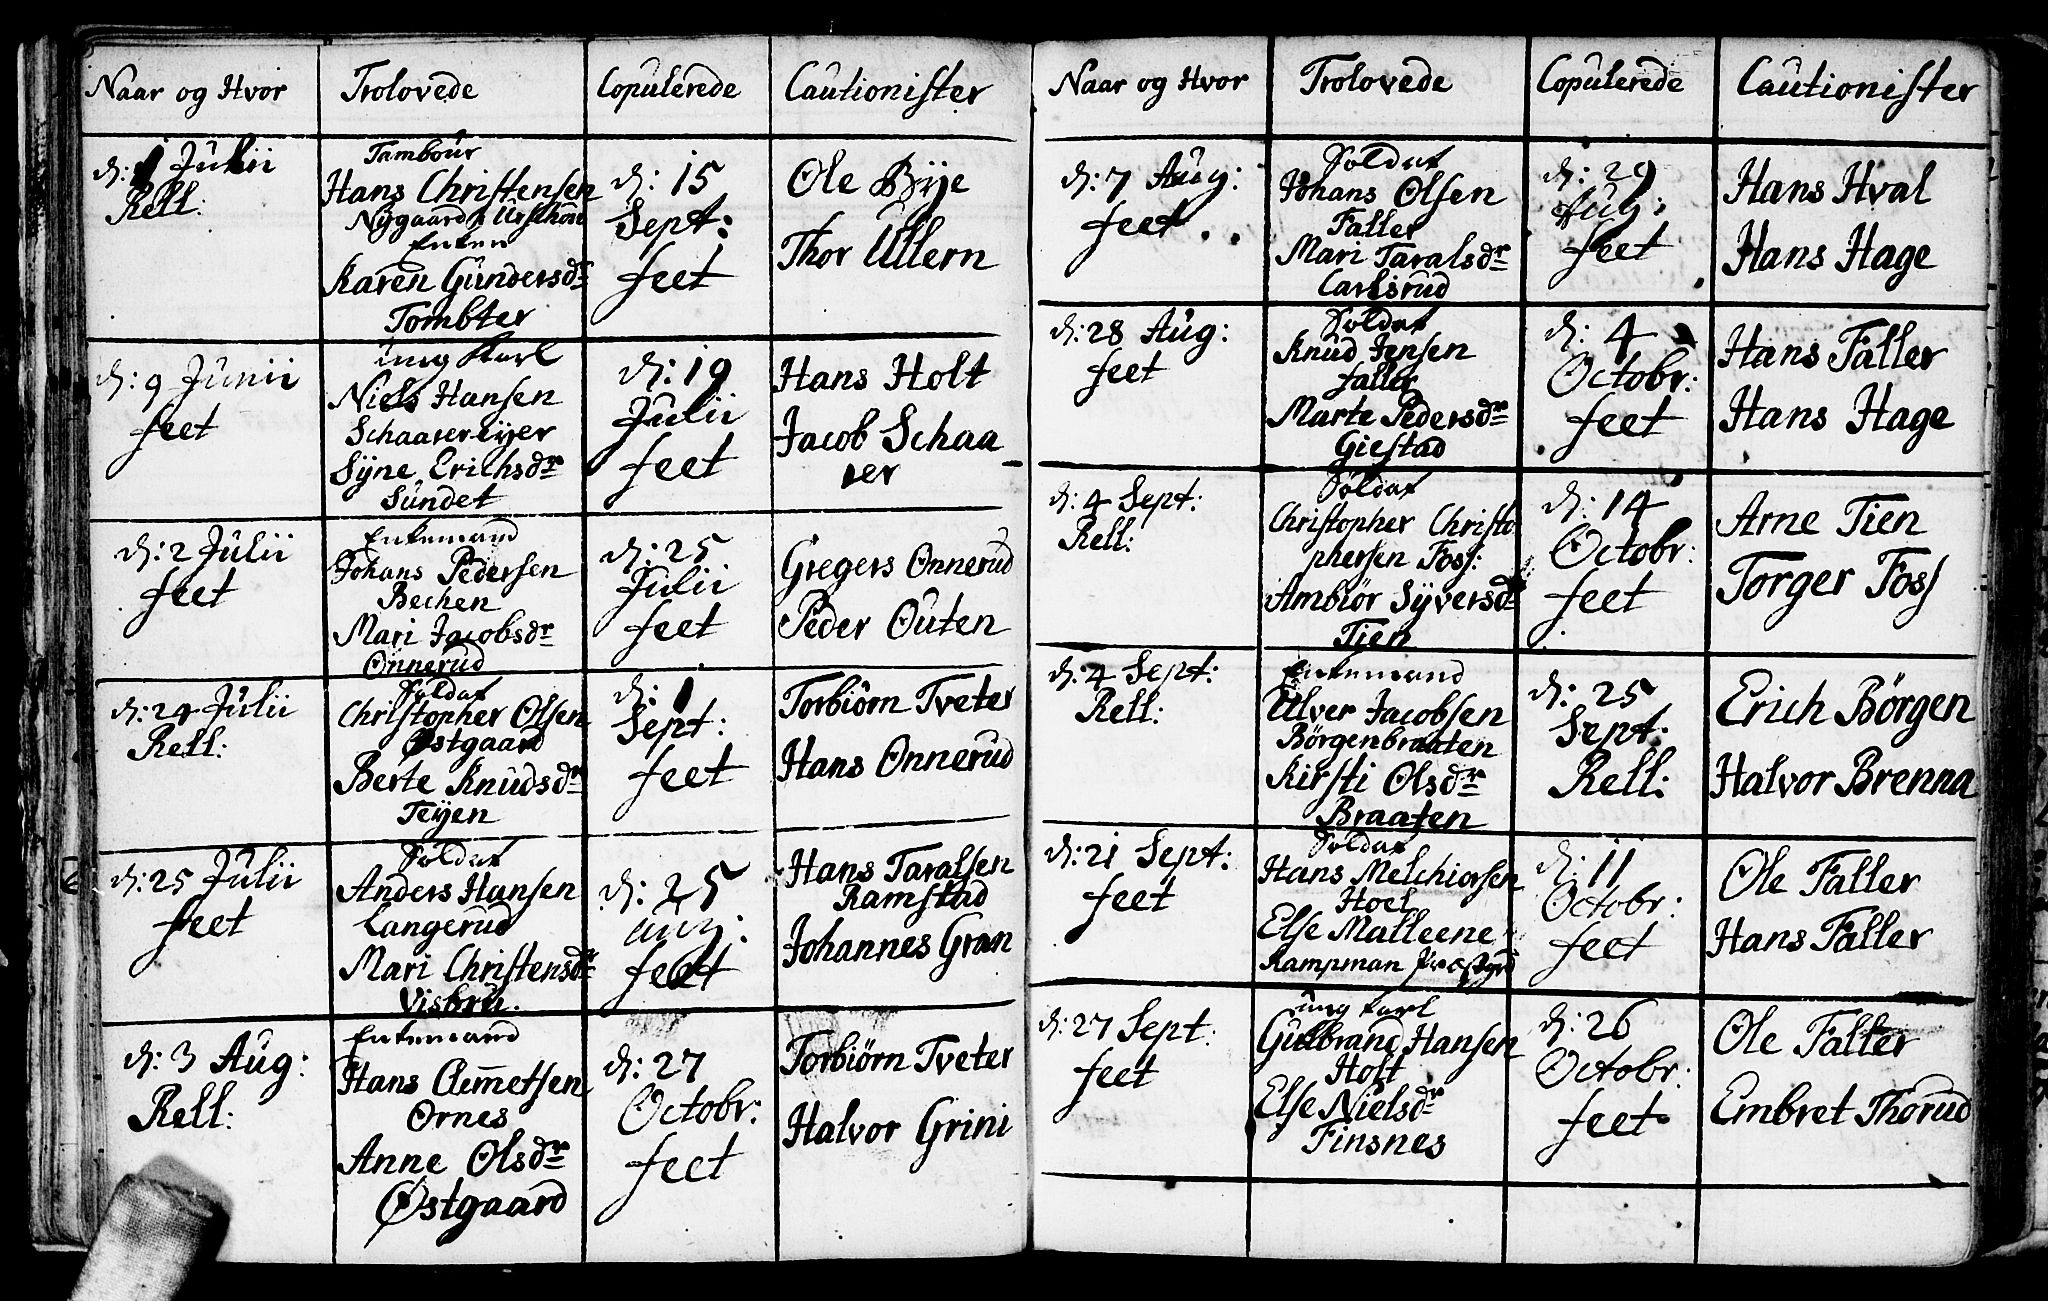 Naar og Hvor
Trolovede
Copulerede
Cautionister
d: 1 Julii
Rell:
Tambour
Hans Christensen
Nygaard
Enken
Karen Gundersdr
Tombter
d: 15
Sept:
feet
Ole Bye
Thor Ullern
d: 9 Junii
feet
ung Karl
Niels Hansen
Schaarereyer
Syne Erichsdr
Sundet
d: 19
Julii
feet
Hans Holt
Jacob Schaa
rer
d: 2 Julii
feet
Enkemand
Johans Pedersen
Bechen
Mari Jacobsdr
Onnerud
d: 25
Julii
feet
Gregers Onnerud
Peder Outen
d: 24 Julii
Rell:
Soldat
Christopher Olsen
Østgaard
Berte Knudsdr
Teyen
d: 1
Sept:
feet
Torbiørn Tveter
Hans Onnerud
d: 25 Julii
feet
Soldat
Anders Hansen
Langerud
Mari Christensdr
Visbru.
d: 25
Aug:
feet
Hans Taralsen
Ramstad
Johannes Gran
d: 3 Aug:
Rell:
Enkemand
Hans Clemetsen
Ornes
Anne Olsdr
Østgaard
d: 27
Octobr:
feet
Torbiørn Tveter
Halvor Grini
Naar og Hvor
Trolovede
Copulerede
Cautionister
d: 7 Aug:
feet
Soldat
Johans Olsen
Faller
Mari Taralsdr
Carlsrud
d: 29
Aug:
feet
Hans Hval
Hans Hage
d: 28 Aug:
feet
Soldat
Knud Jensen
faller
Marte Pedersdr
Giestad
d: 4
Octobr:
feet
Hans Faller
Hans Hage
d: 4 Sept:
Rell:
Soldat
Christopher Christo
phersen Foss:
Ambiør Syversdr
Tien
d: 14
Octobr:
feet
Arne Tien
Torger Foss
d: 4 Sept:
Rell:
Enkemand
Ulver Jacobsen
Børgenbraaten
Kirsti Olsdr
Braaten
d: 25
Sept:
Rell:
Erich Børgen
Halvor Brenna
d: 21 Sept:
feet
Soldat
Hans Melchiorsen
Hoel
Else Malleene
Rampman
d: 11
Octobr:
feet
Ole Faller
Hans Faller
d: 27 Sept:
feet
ung karl
Gulbrand Hansen
Holt
Else Nielsdr
Finsnes
d: 26
Octobr:
feet
Ole Faller
Embret Thorud